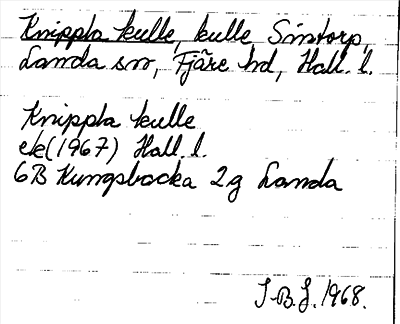 Knippla kulle, kulle Sintorp,
Landa sn, Fjäre hd, Hall. l.
Knippla kulle
ek(1967) Hall. l.
6B Kungsbacka 2g Landa
J.B.J. 1968.